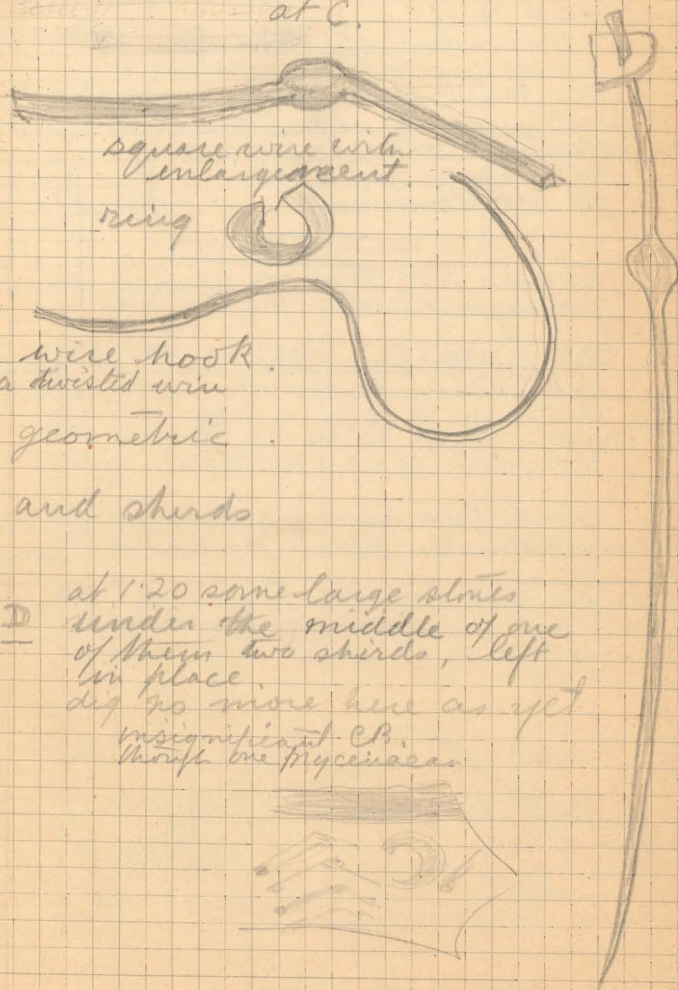 at C.
square wire with
enlargement.
ring
wire hook.
a twisted wire
geometric.
and sherds
at 1.20 some large stones
D under the middle of one
of them two sherds, left
in place
dig no more here as yet
insignificant CP.
though one Mycenaean